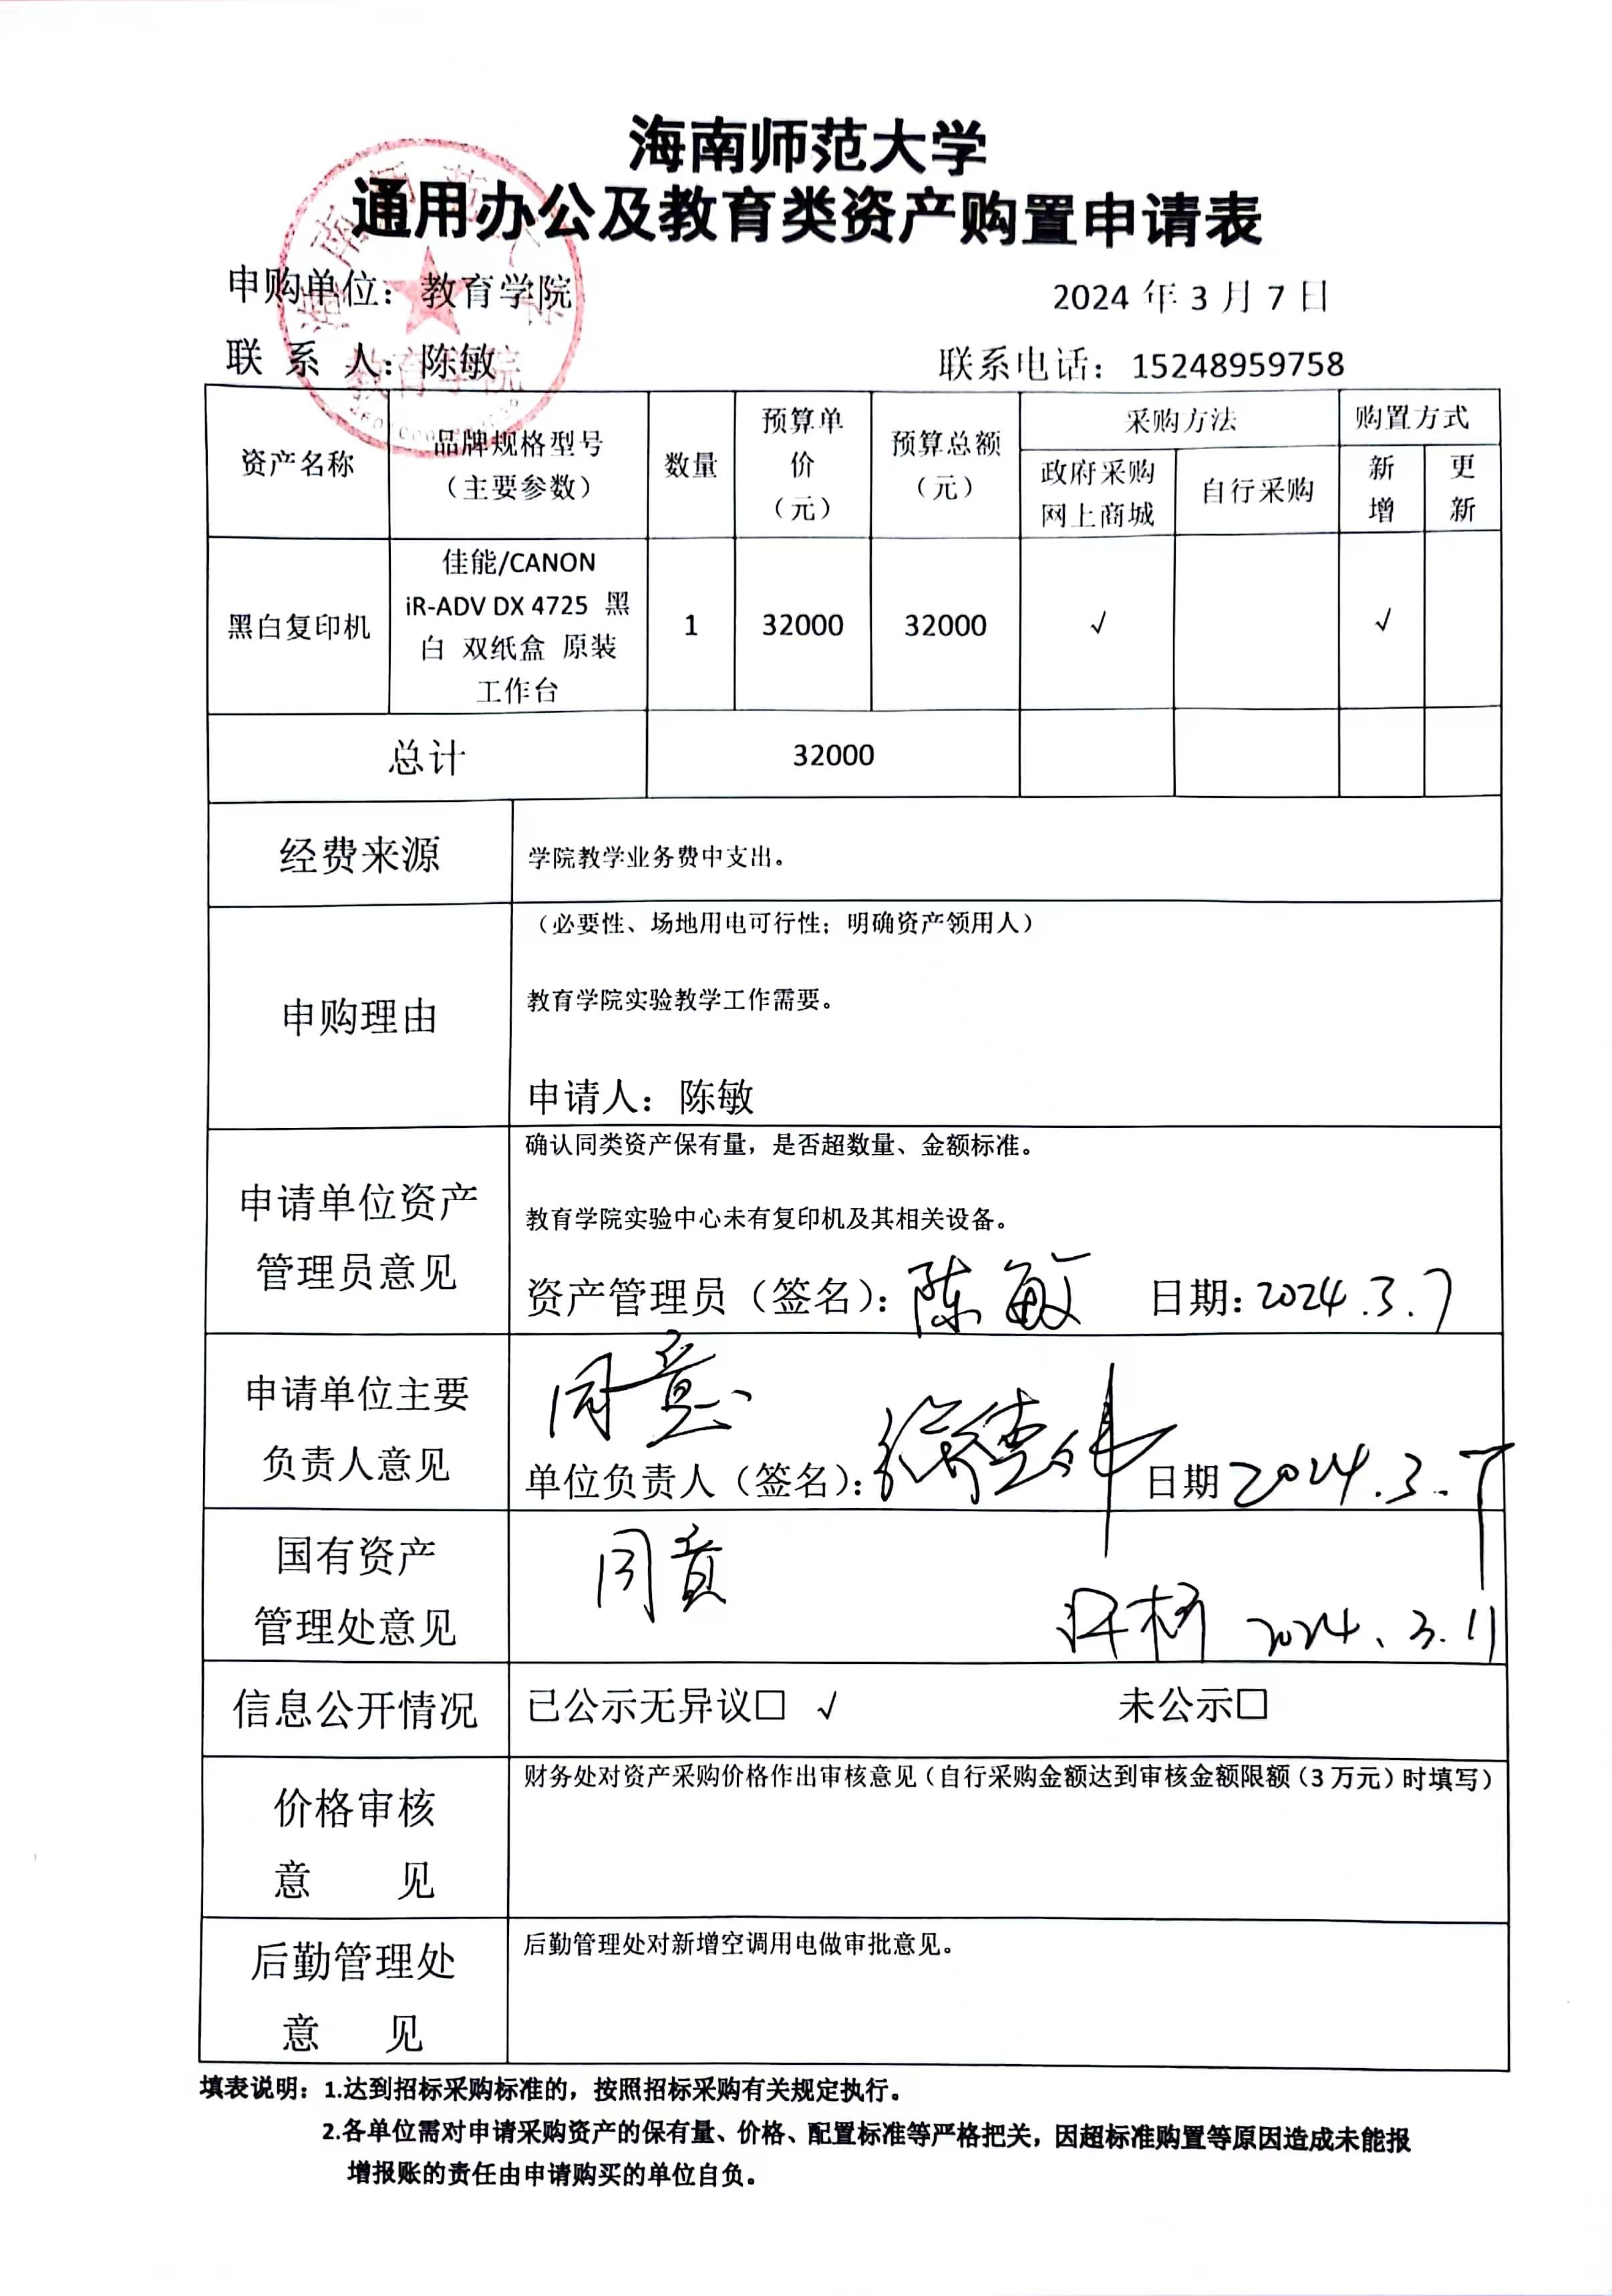 海南师范大学
通用办公及教育类资产购置申请表
申购单位：教育学院 2024 年 3 月 7 日
联 系 人：陈敏 联系电话：15248959758
资产名称 品牌规格型号（主要参数） 数量 预算单价（元） 预算总额（元） 采购方法 购置方式
政府采购网上商城 自行采购 新增 更新
黑白复印机 佳能/CANON iR-ADV DX 4725 黑白 双纸盒 原装工作台 1 32000 32000 √ √
总计 32000
经费来源 学院教学业务费中支出。
申购理由
（必要性、场地用电可行性；明确资产领用人）
教育学院实验教学工作需要。
申请人：陈敏
申请单位资产管理员意见
确认同类资产保有量，是否超数量、金额标准。
教育学院实验中心未有复印机及其相关设备。
资产管理员（签名）：陈敏 日期：2024.3.7
申请单位主要负责人意见
同意
单位负责人（签名）： 日期 2024.3.7
国有资产管理处意见
同意
2024.3.11
信息公开情况 已公示无异议□ √ 未公示□
价格审核意 见
财务处对资产采购价格作出审核意见（自行采购金额达到审核金额限额（3 万元）时填写）
后勤管理处意 见
后勤管理处对新增空调用电做审批意见。
填表说明：1.达到招标采购标准的，按照招标采购有关规定执行。
2.各单位需对申请采购资产的保有量、价格、配置标准等严格把关，因超标准购置等原因造成未能报
增报账的责任由申请购买的单位自负。